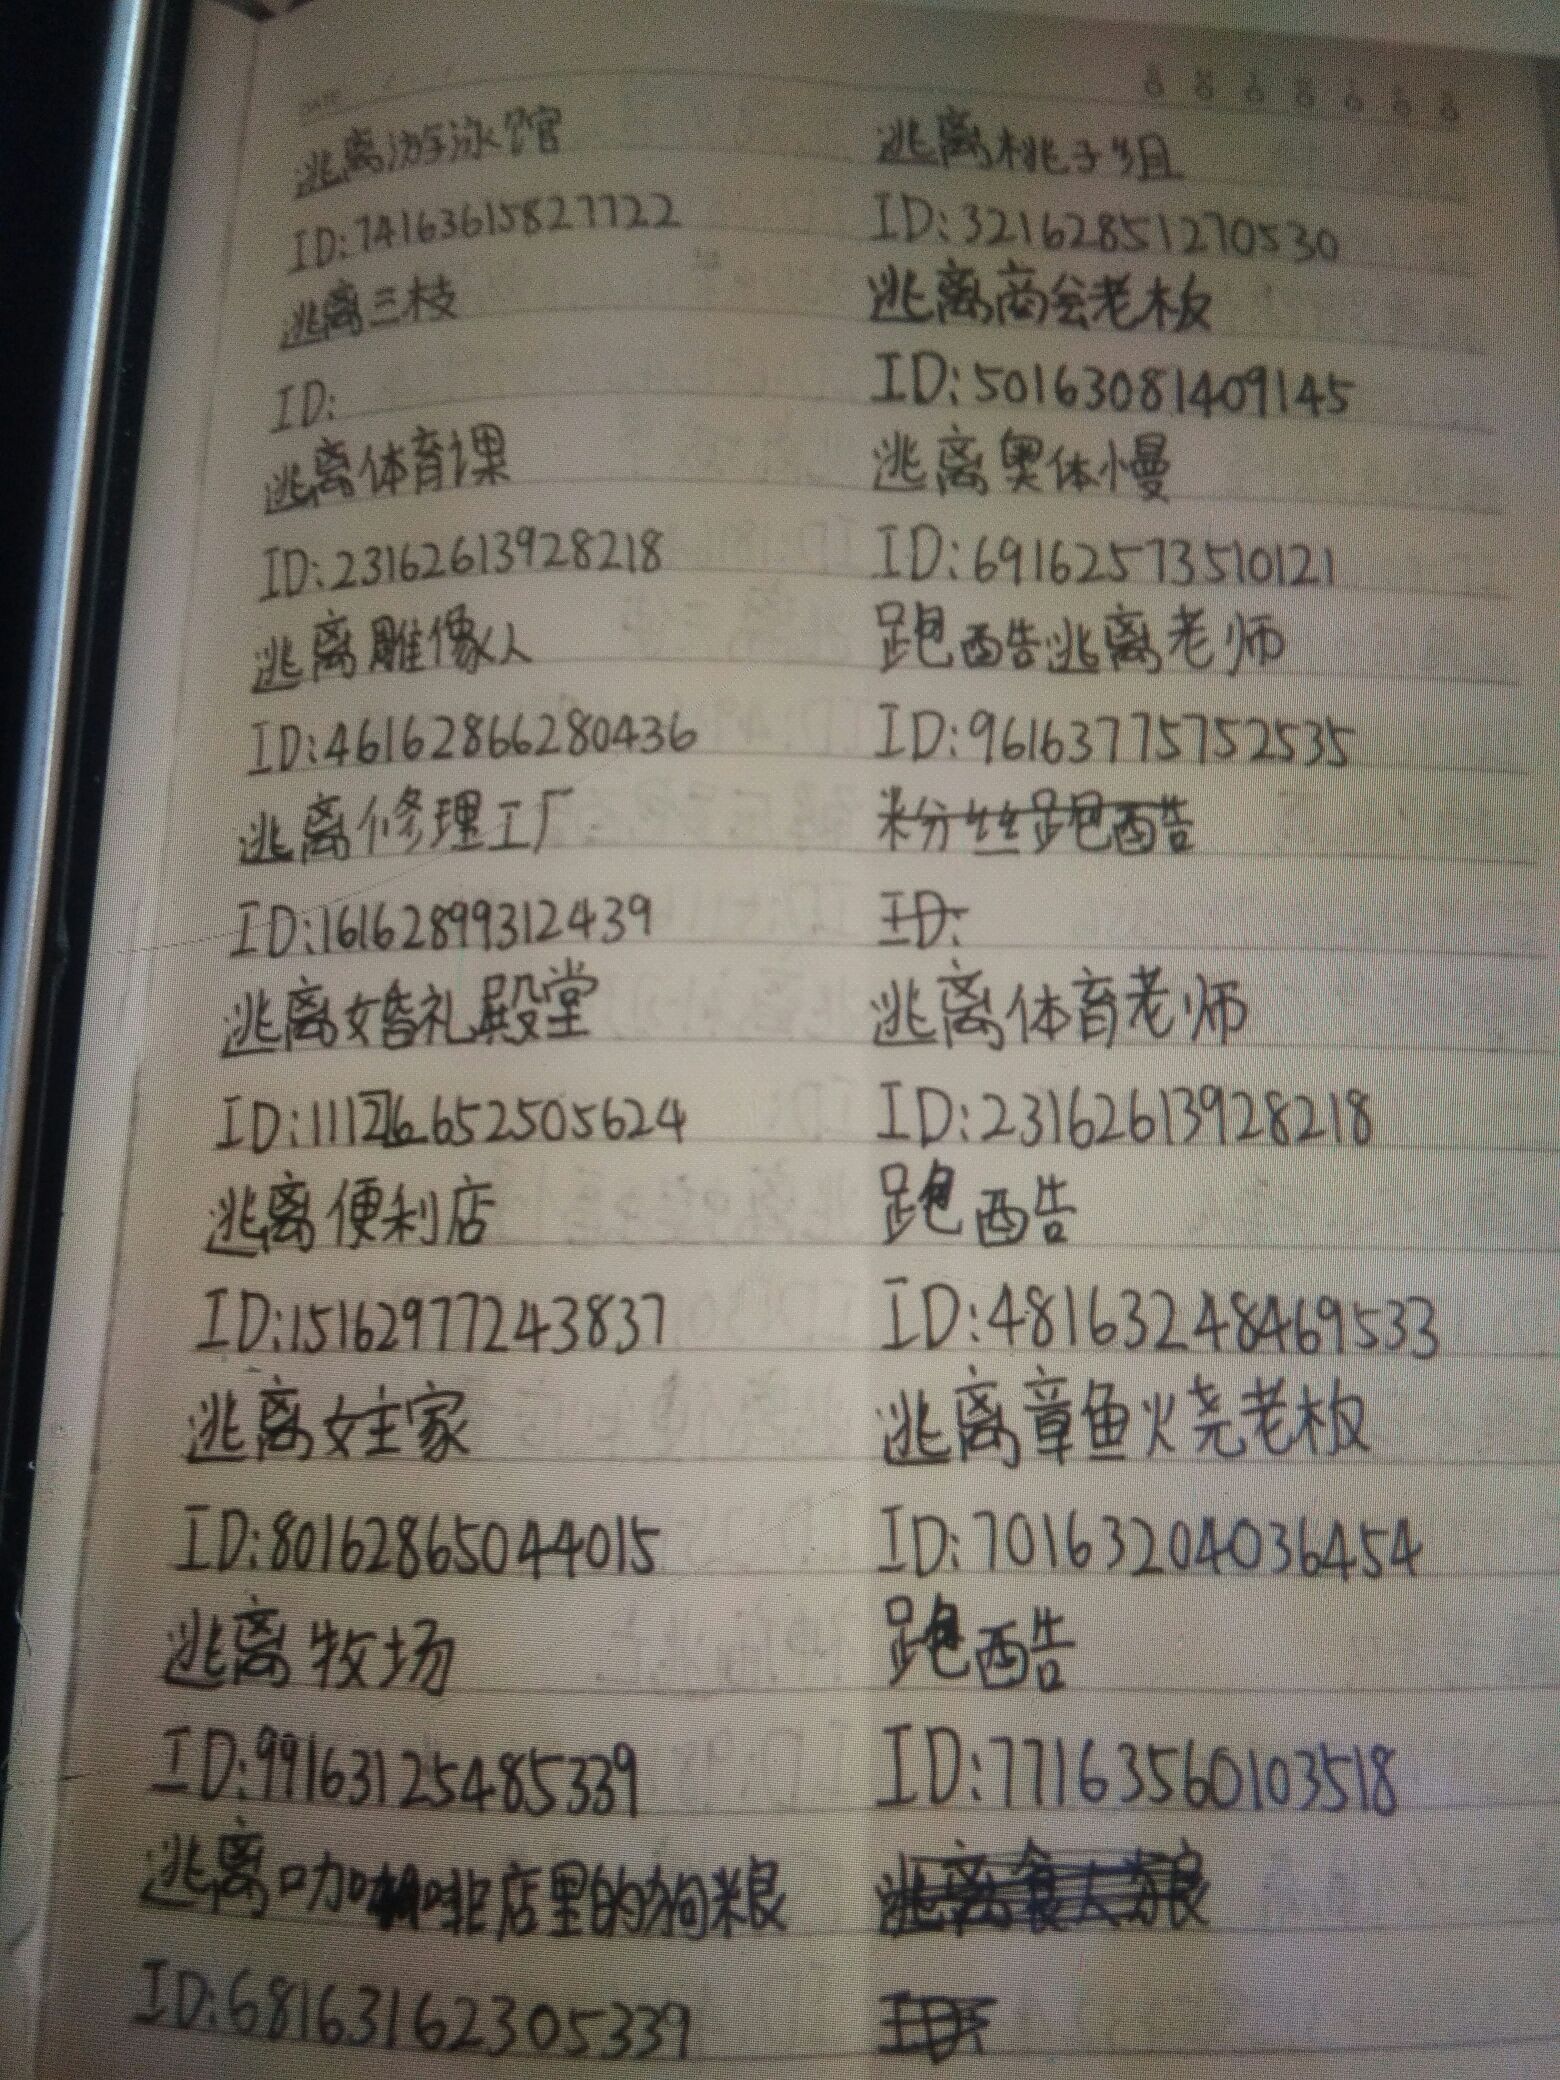 逃离游泳馆
ID:74163615827722
逃离三枝
ID:
逃离体育课
ID:23162613928218
逃离雕像人
ID:46162866280436
逃离修理工厂
ID:16162899312439
逃离婚礼殿堂
逃离便利店
ID:15162977243837
逃离女主家
ID:80162865044015
逃离牧场
ID:99163125485339
逃离咖啡店里的狗粮
ID:68163162305339
逃离桃子姐
ID:32162851270530
逃离商会老板
ID:50163081409145
逃离奥体慢
ID:69162573510121
跑酷逃离老师
ID:96163775752535
粉丝跑酷
ID:
逃离体育老师
ID:23162613928218
跑酷
ID:48163248469533
逃离章鱼烧老板
ID:70163204036454
跑酷
ID:77163560103518
ID: